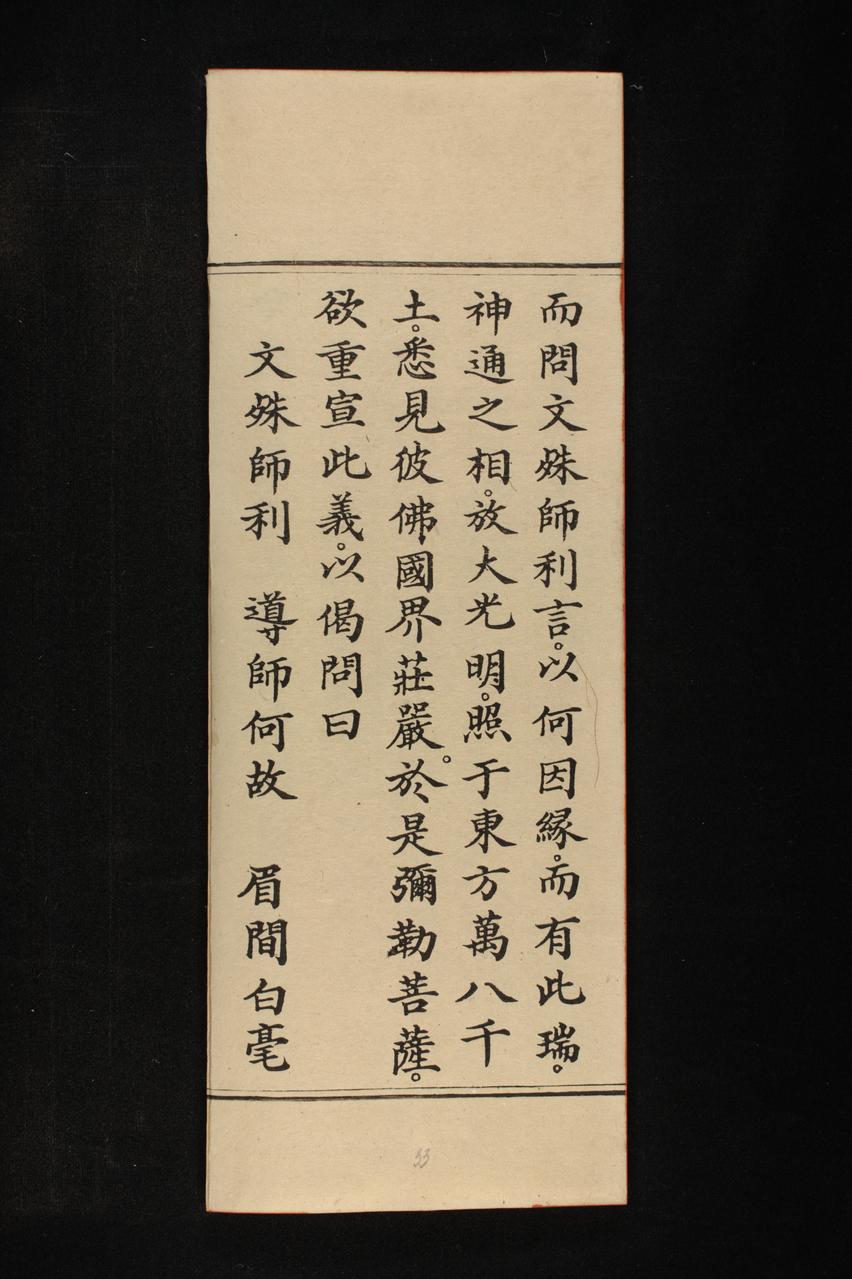 而問文殊師利言。以何因緣。而有此瑞。
神通之相。放大光明。照于東方萬八千
土。悉見彼佛國界莊嚴。於是彌勒菩薩。
欲重宣此義。以偈問曰
文殊師利　導師何故　眉間白毫
33